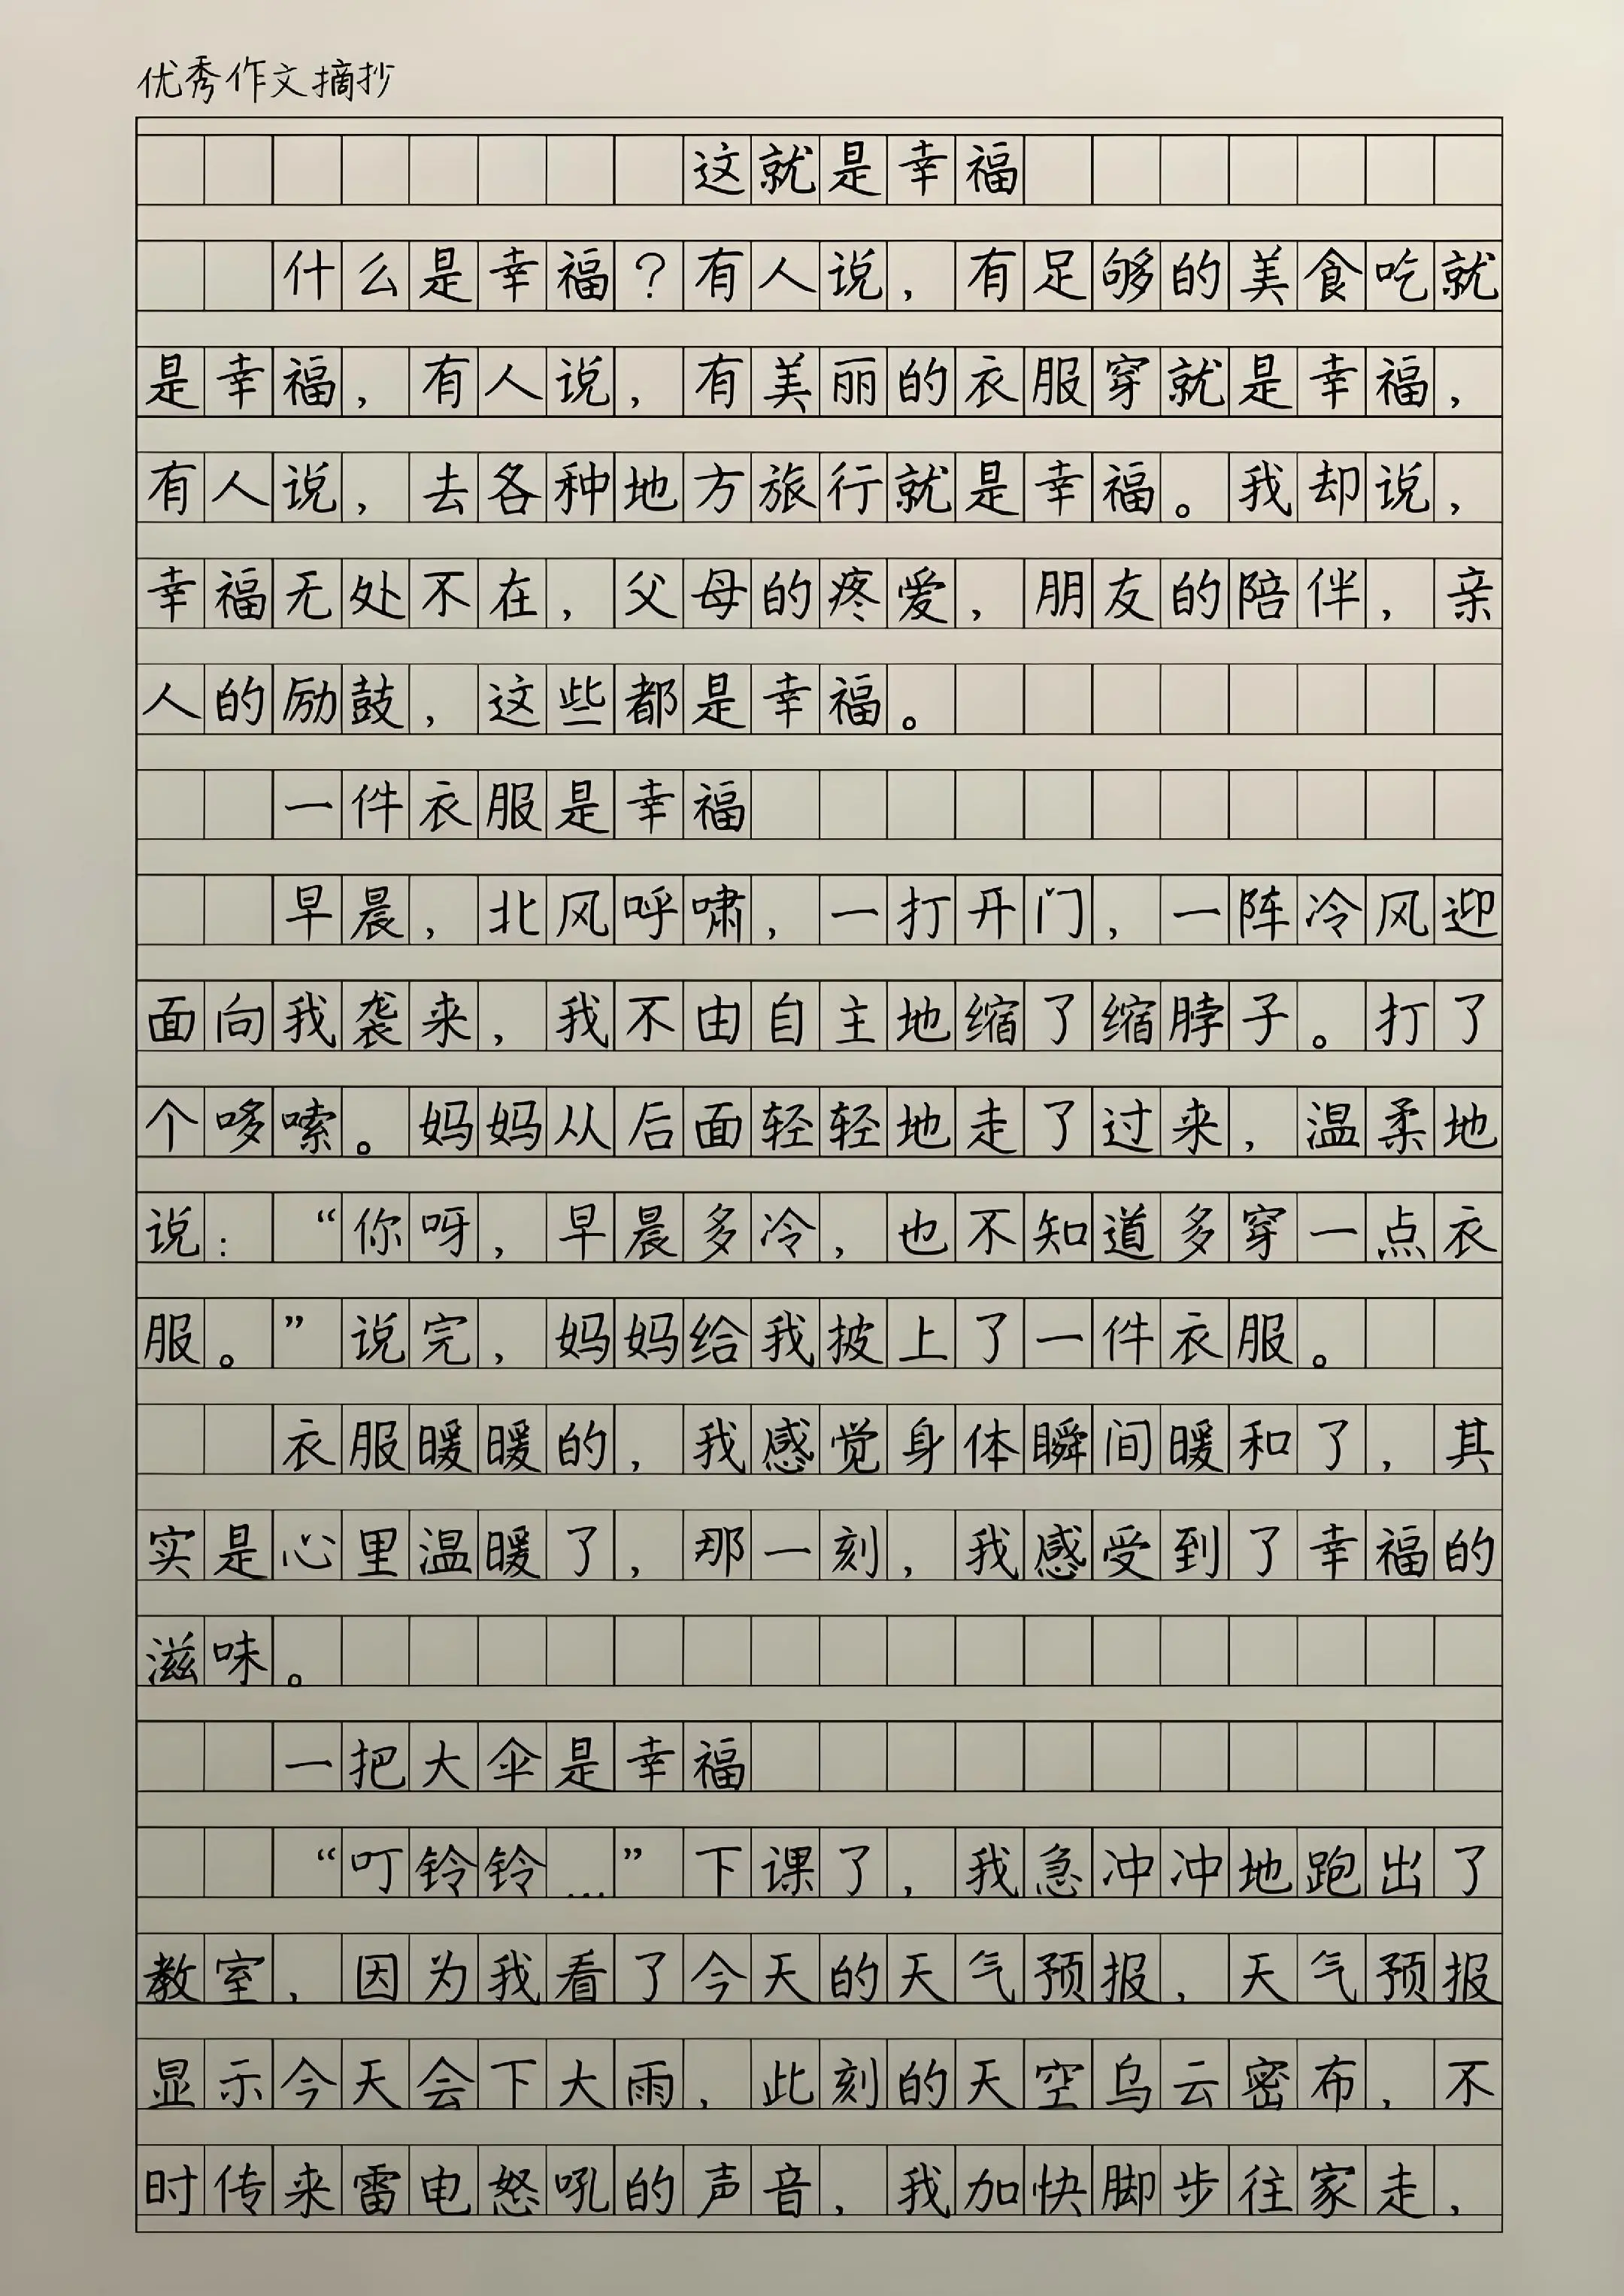 优秀作文摘抄
这就是幸福
什么是幸福？有人说，有足够的美食吃就
是幸福，有人说，有美丽的衣服穿就是幸福，
有人说，去各种地方旅行就是幸福。我却说，
幸福无处不在，父母的疼爱，朋友的陪伴，亲
人的励鼓，这些都是幸福。
一件衣服是幸福
早晨，北风呼啸，一打开门，一阵冷风迎
面向我袭来，我不由自主地缩了缩脖子。打了
个哆嗦。妈妈从后面轻轻地走了过来，温柔地
说：“你呀，早晨多冷，也不知道多穿一点衣
服。”说完，妈妈给我披上了一件衣服。
衣服暖暖的，我感觉身体瞬间暖和了，其
实是心里温暖了，那一刻，我感受到了幸福的
滋味。
一把大伞是幸福
“叮铃铃…”下课了，我急冲冲地跑出了
教室，因为我看了今天的天气预报，天气预报
显示今天会下大雨，此刻的天空乌云密布，不
时传来雷电怒吼的声音，我加快脚步往家走，